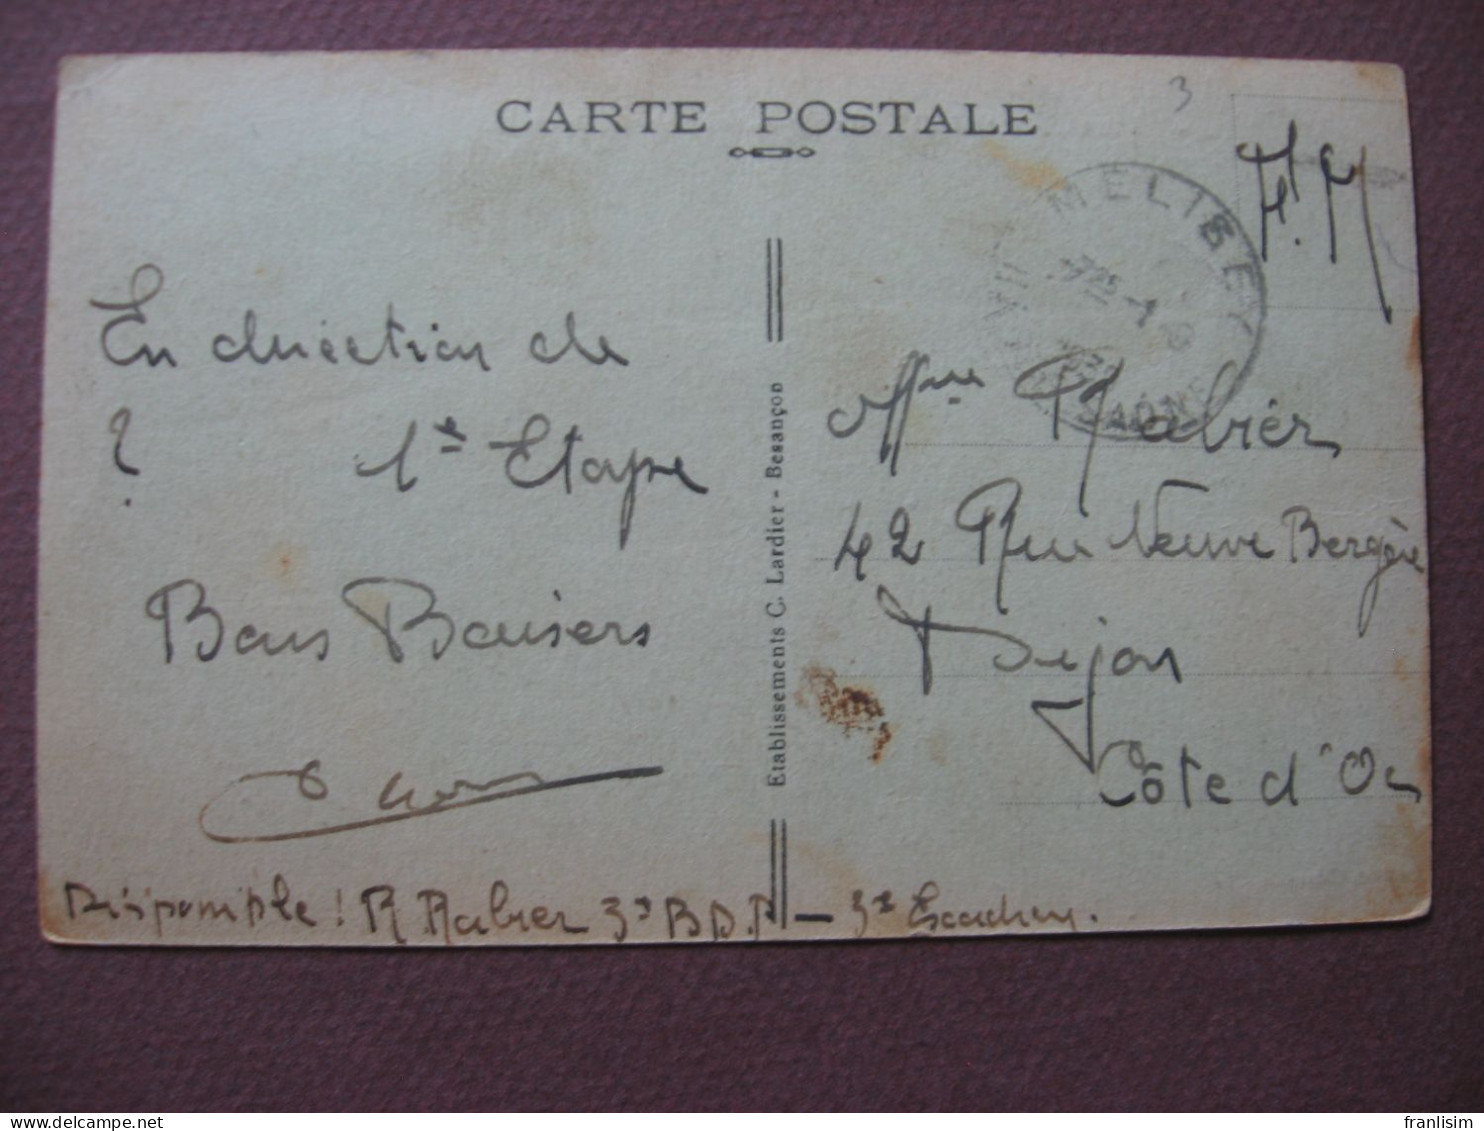 CARTE POSTALE
3
F. M
MELISEY
SAÔNE
En direction de
? 1re Etape
Bons Baisers
Mme Rabier
42 Rue Neuve Bergère
Dijon
Côte d'Or
Etablissements C. Lardier - Besançon
Disponible ! R Rabier 3e B D.P — 3e Escadron.
franlisim